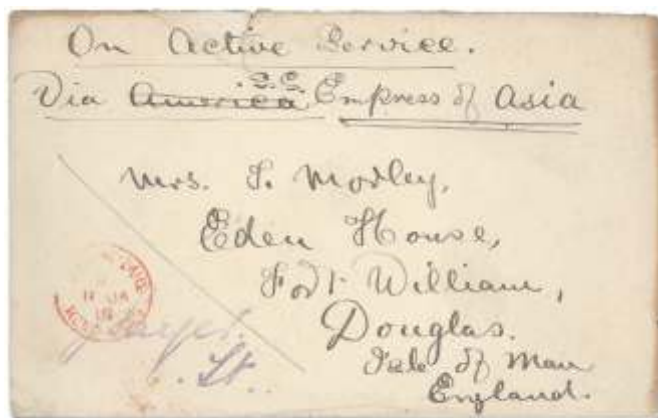 On Active Service.
Via America S.S. Empress of Asia
Mrs. S. Morley,
Eden House,
Fort William,
Douglas.
Isle of Man
England.
Lt.